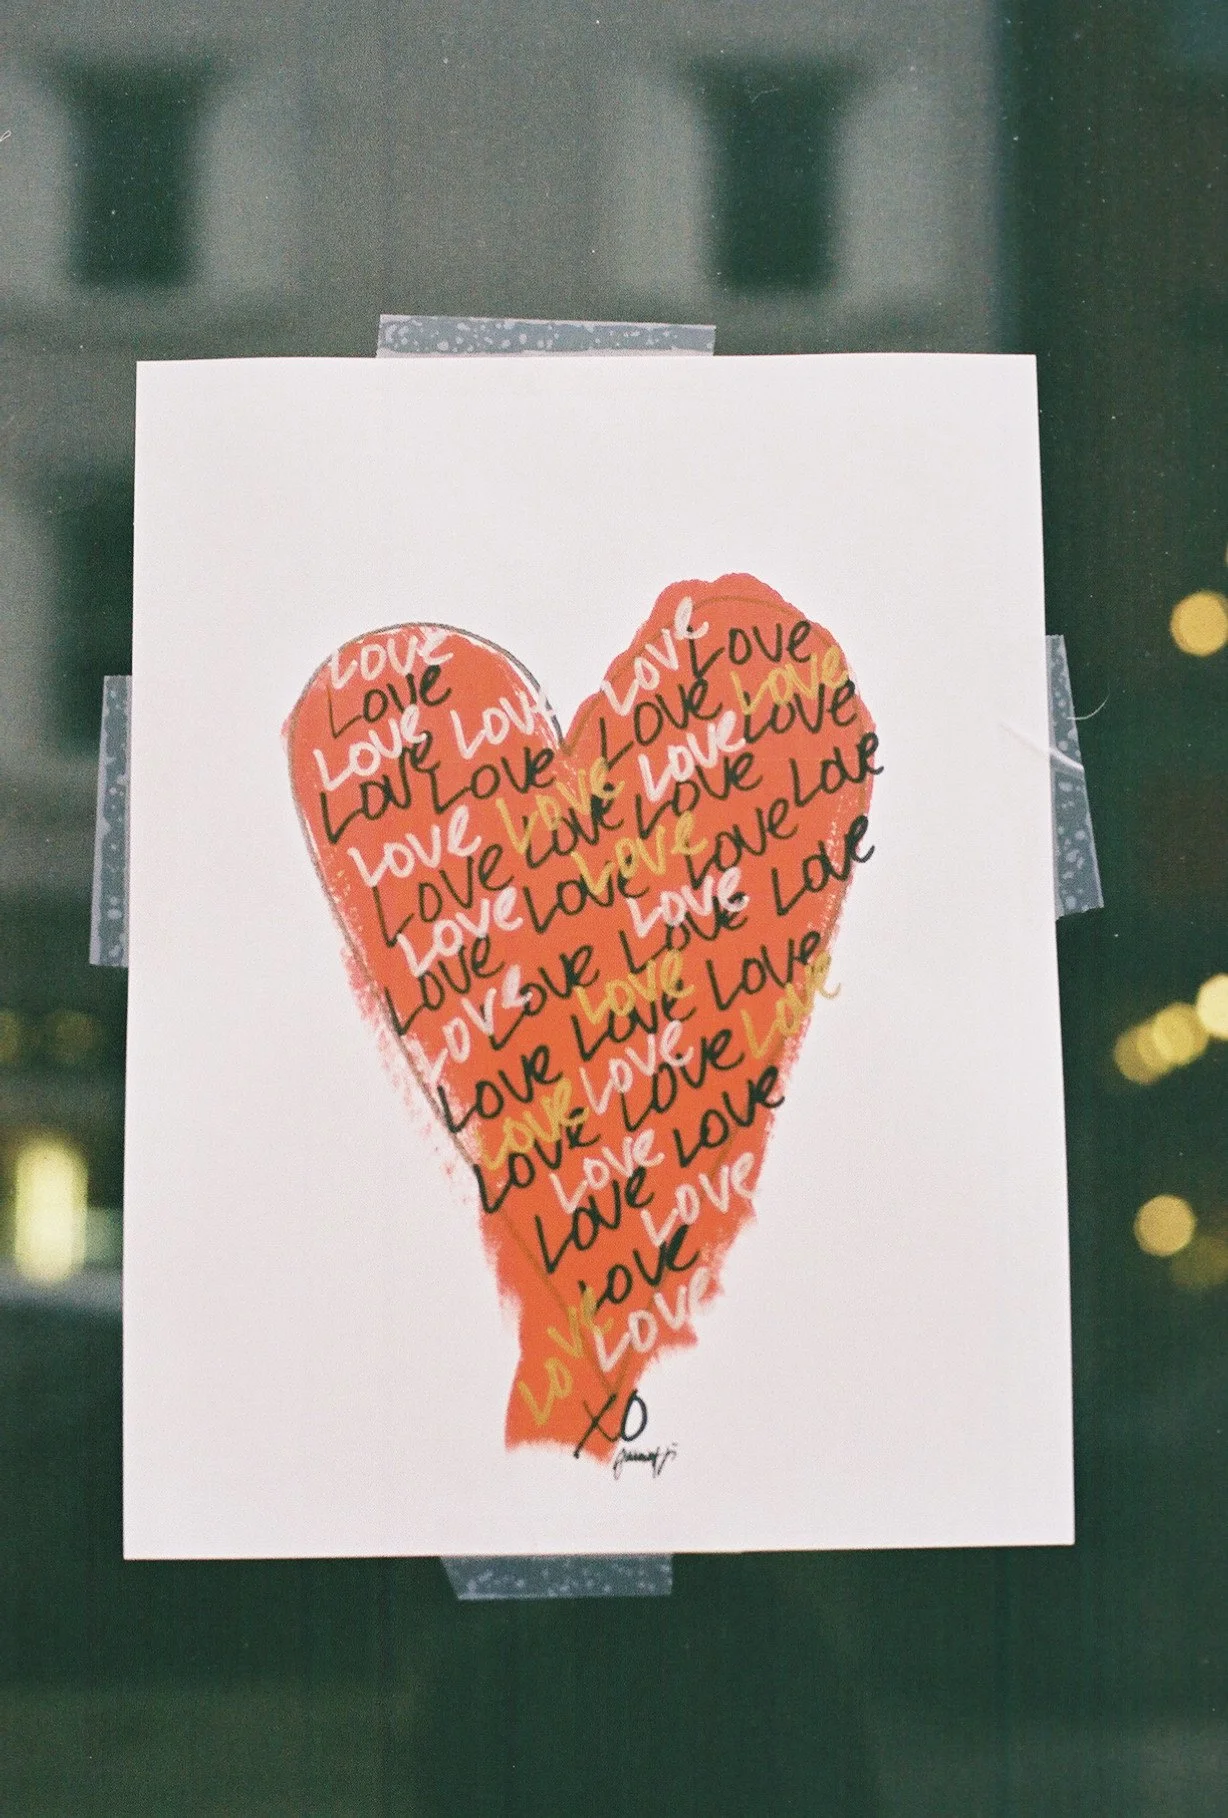 LOVE LOVE LOVE
LOVE LOVE LOVE LOVE
LOVE LOVE LOVE
LOVE LOVE LOVE LOVE
LOVE LOVE LOVE
LOVE LOVE LOVE
LOVE LOVE LOVE
LOVE LOVE LOVE
LOVE LOVE LOVE LOVE
LOVE LOVE
LOVE LOVE LOVE
LOVE LOVE
LOVE LOVE
LOVE LOVE
LOVE
LOVE LOVE
XO